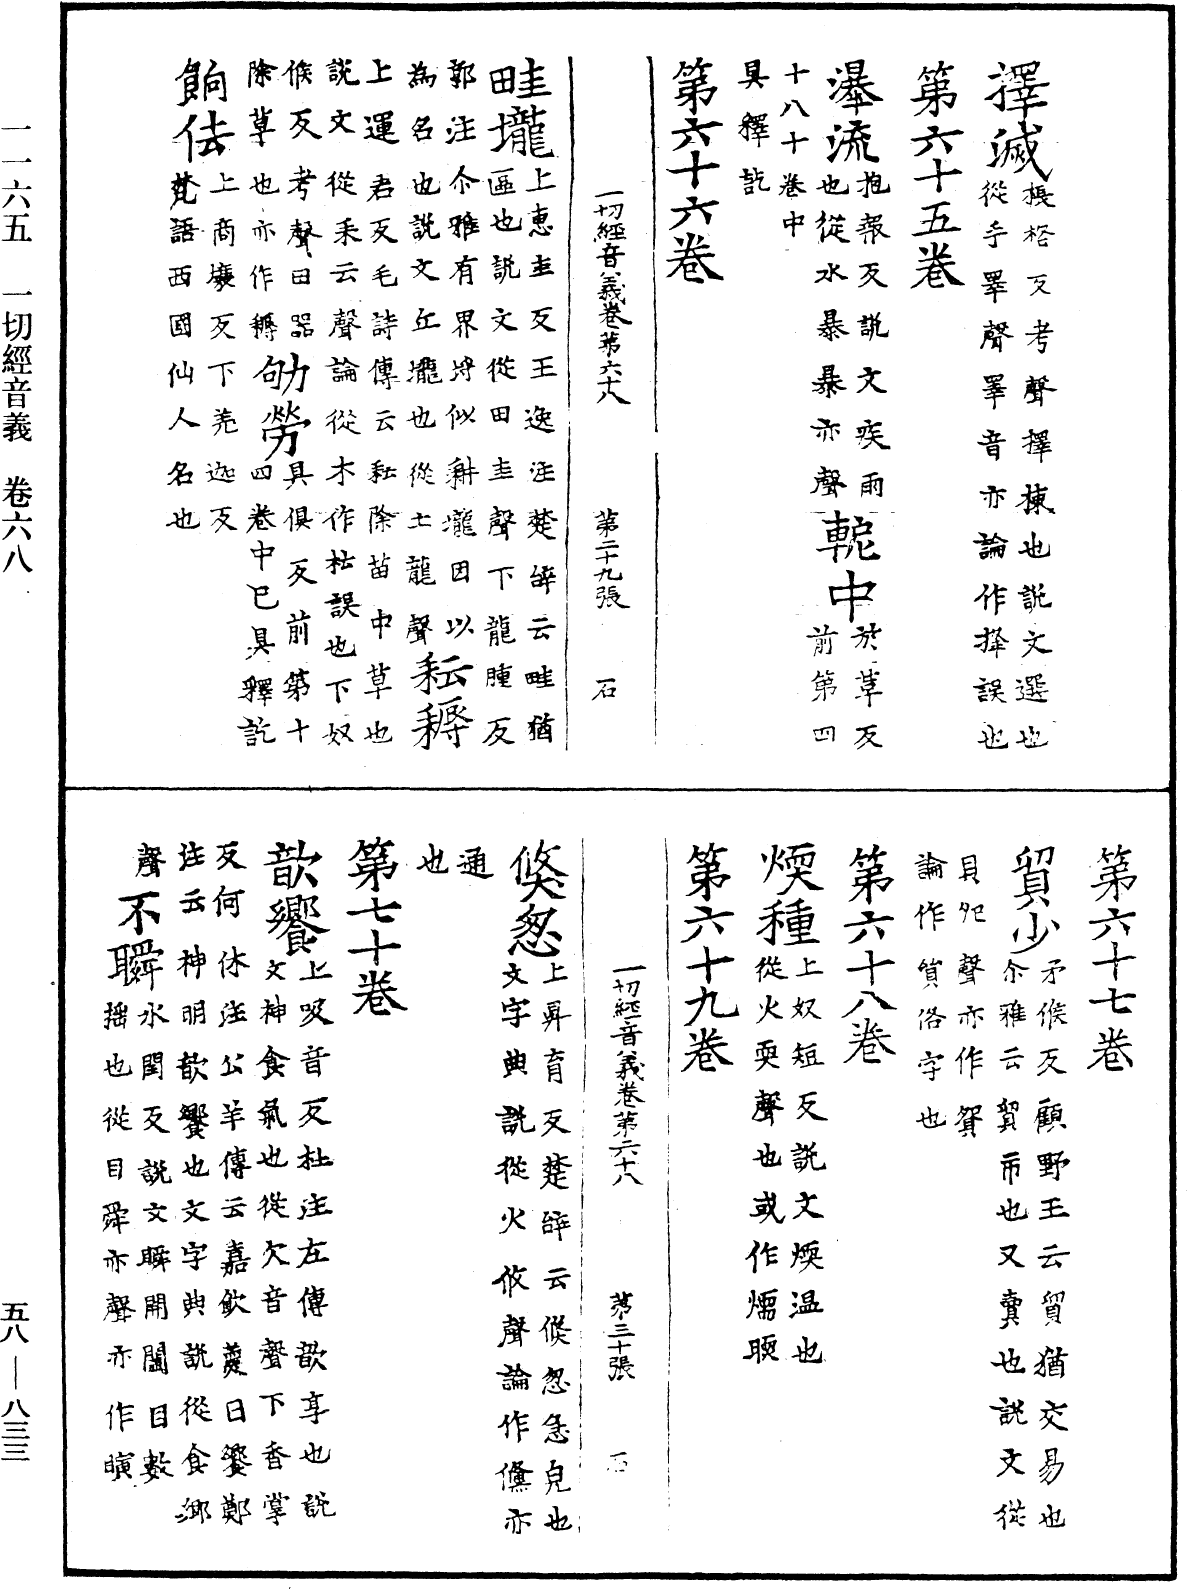 擇滅
棖格反考聲擇揀也說文選也
從手睪聲睪音亦論作擇誤也
第六十五卷
瀑流
抱報反說文疾雨
也從水暴暴亦聲
軶中
於革反
前第四
十八十卷中
具釋訖
第六十六卷
一切經音義卷第六十八　第二十九張　石
畦壠
上惠圭反王逸注楚辝云畦猶
區也說文從田圭聲下龍腫反
郭注尒雅有界埒似耕壠因以
為名也說文丘壠也從土龍聲
耘耨
上運君反毛詩傳云耘除苗中草也
說文從耒云聲論從木作枟誤也下奴
候反考聲曰器
除草也亦作耨
劬勞
具俱反前第十
四卷中已具釋訖
餉佉
上商壤反下羌迦反
梵語西國仙人名也
第六十七卷
貿少
矛候反顧野王云貿猶交易也
尒雅云貿市也又賣也說文從
貝戼聲亦作貿
論作貿俗字也
第六十八卷
煗種
上奴短反說文煗温也
從火耎聲也或作煗㬉
第六十九卷
一切經音義卷第六十八　第三十張　石
倏忽
上昇育反楚辝云倏忽急皃也
文字典說從火攸聲論作儵亦
通
也
第七十卷
歆饗
上吸音反杜注左傳歆享也說
文神食氣也從欠音聲下香掌
反何休注公羊傳云嘉飲薦曰饗鄭
注云神明歆饗也文字典說從食鄉
聲
不瞬
水閏反說文瞬開闔目數
搖也從目舜亦聲亦作瞚
一一六五　一切經音義　卷六八
五八—八三三